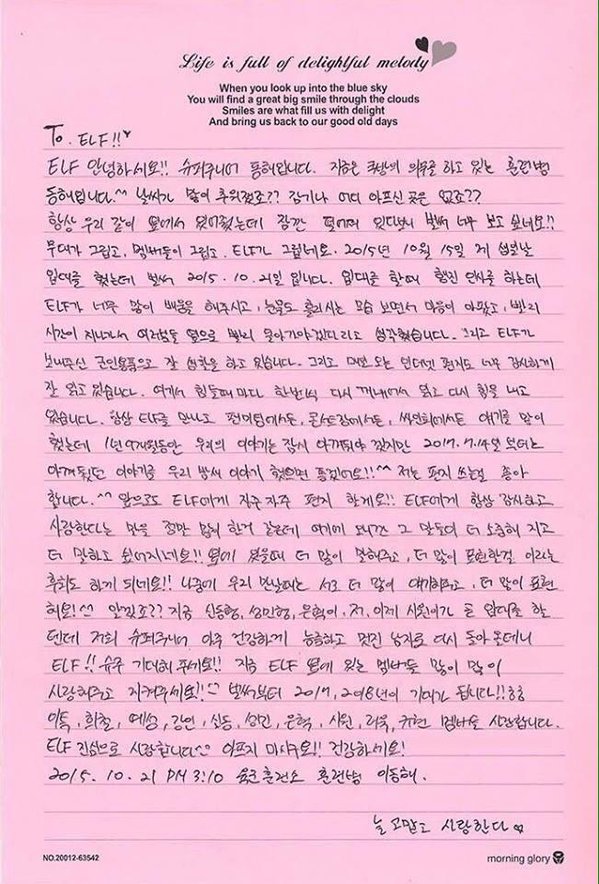 Life is full of delightful melody
When you look up into the blue sky
You will find a great big smile through the clouds
Smiles are what fill us with delight
And bring us back to our good old days
To. ELF!!♥
ELF 안녕하세요!! 슈퍼주니어 동해입니다. 지금은 국방의 의무를 하고 있는 훈련병
동해입니다.^^ 날씨가 많이 추워졌죠?? 감기나 어디 아프신 곳은 없죠??
항상 우리 같이 옆에서 있어줬는데 잠깐 떨어져 있다보니 벌써 너무 보고 싶네요!!
무대가 그립고, 멤버들이 그립고, ELF가 그립네요. 2015년 10월 15일 제 생일날
입대를 했는데 벌써 2015. 10. 21일 입니다. 입대를 할때 행진 인사를 하는데
ELF가 너무 많이 배웅을 해주시고, 눈물도 흘리시는 모습 보면서 마음이 아팠고, 빨리
시간이 지나가서 여러분들 옆으로 빨리 돌아가야겠다라고 생각했습니다. 그리고 ELF가
보내주신 군인용품으로 잘 생활을 하고 있습니다. 그리고 매번 오는 인터넷 편지도 너무 감사하게
잘 읽고 있습니다. 여기서 힘들때 마다 한번씩 다시 꺼내어서 읽고 다시 힘을 내고
있습니다. 항상 ELF를 만나고 팬미팅에서든, 콘서트장에서든, 싸인회에서든 얘기를 많이
했는데 1년 9개월동안 우리의 이야기는 잠시 아껴둬야 겠지만 2017.7.14일 부터는
아껴 뒀던 이야기를 우리 밤새 이야기 했으면 좋겠어요!!^^ 저는 편지 쓰는걸 좋아
합니다.^^ 앞으로도 ELF에게 자주 자주 편지 할게요!! ELF에게 항상 감사하고
사랑한다는 말을 정말 많이 한거 같은데 여기에 오니깐 그 말들이 더 소중해 지고
더 말하고 싶어지네요!! 옆에 있을때 더 많이 말해주고, 더 많이 표현할걸 이라는
후회도 하게 되네요!! 나중에 우리 만날때는 서로 더 많이 얘기해주고, 더 많이 표현
해요!^^ 알겠죠?? 지금 신동형, 성민형, 은혁이, 저, 이제 시원이가 곧 입대를 할
텐데 저희 슈퍼주니어 아주 건강하게 늠름하고 멋진 남자로 다시 돌아 올테니
ELF!! 슈주 기대해 주세요!! 지금 ELF 옆에 있는 멤버들 많이 많이
사랑해주고 지켜주세요!!^^ 벌써부터 2017, 2018년이 기대가 됩니다!!
이특, 희철, 예성, 강인, 신동, 성민, 은혁, 시원, 려욱, 규현 멤버들 사랑합니다.
ELF 진심으로 사랑합니다^^ 아프지 마시구요!! 건강하세요!
2015. 10. 21 PM 3:10 훈련소 훈련병 이동해.
늘 고맙고 사랑한다♡
NO.20012-63542
morning glory